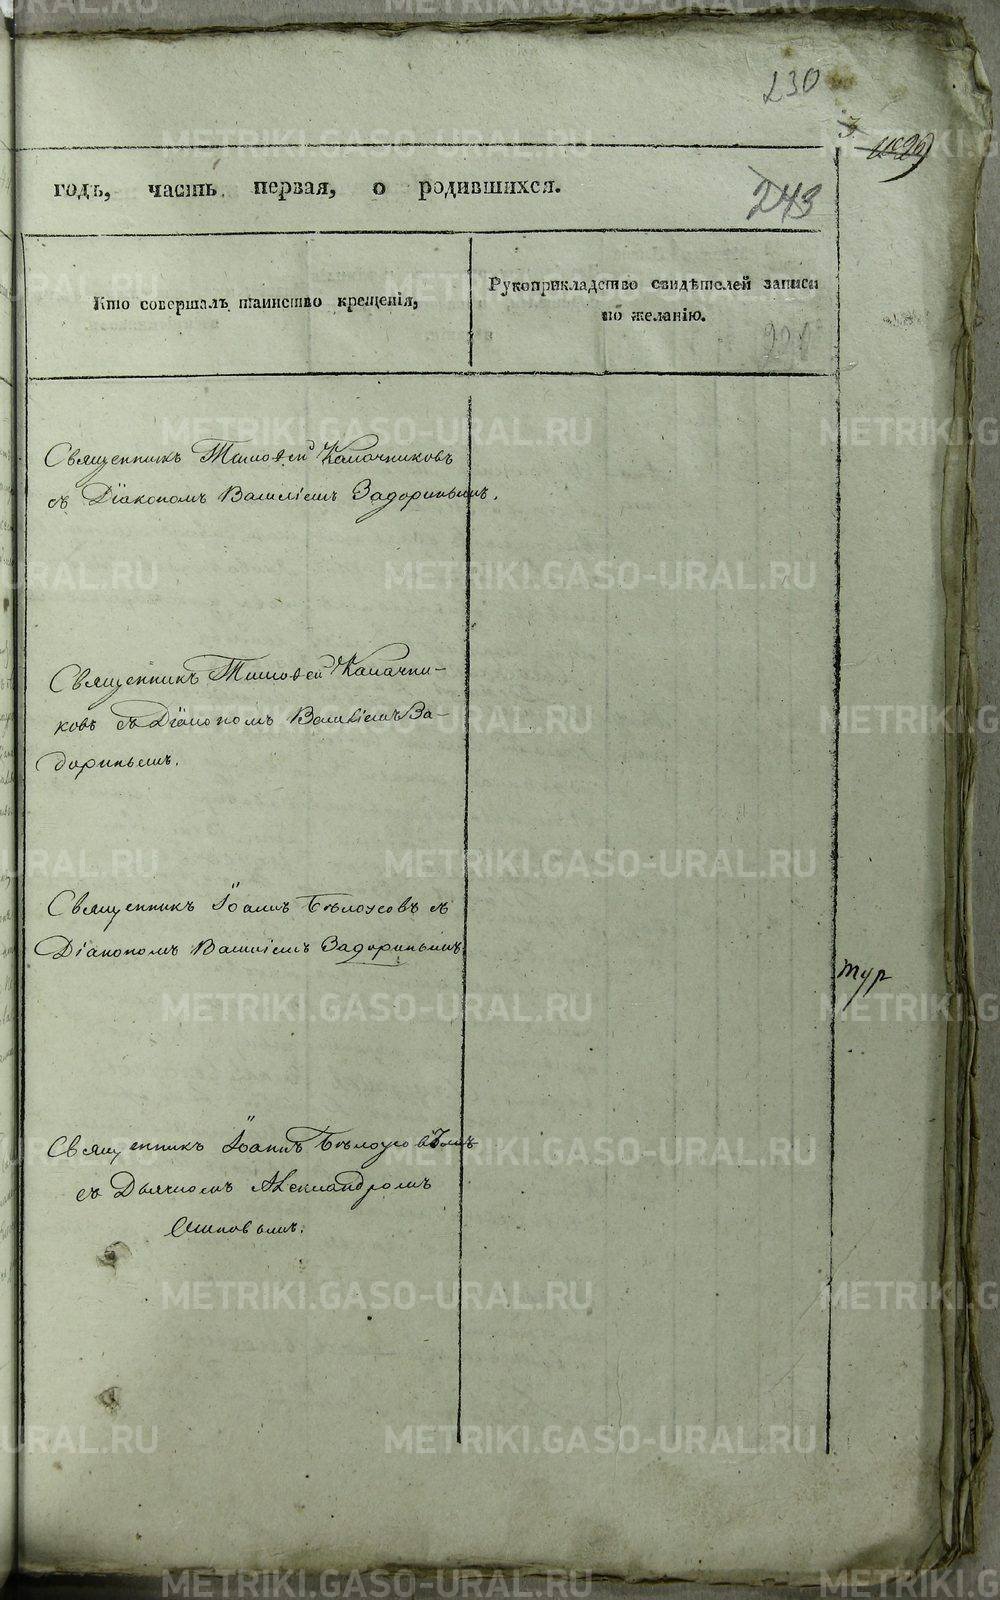 230
годъ, часть первая, о родившихся.
243
Кто совершалъ таинство крещенія,
Рукоприкладство свидѣтелей записи
по желанію.
Священникъ Тимофей Калачниковъ
съ Діакономъ Василіемъ Задоринымъ.
Священникъ Тимофей Калачни-
ковъ съ Діакономъ Василіемъ За-
доринымъ.
Священникъ Іоаннъ Бѣлоусовъ съ
Діакономъ Василіемъ Задоринымъ.
тур
Священникъ Іоаннъ Бѣлоусовъ
съ Дьячкомъ Александромъ
METRIKI.GASO-URAL.RU